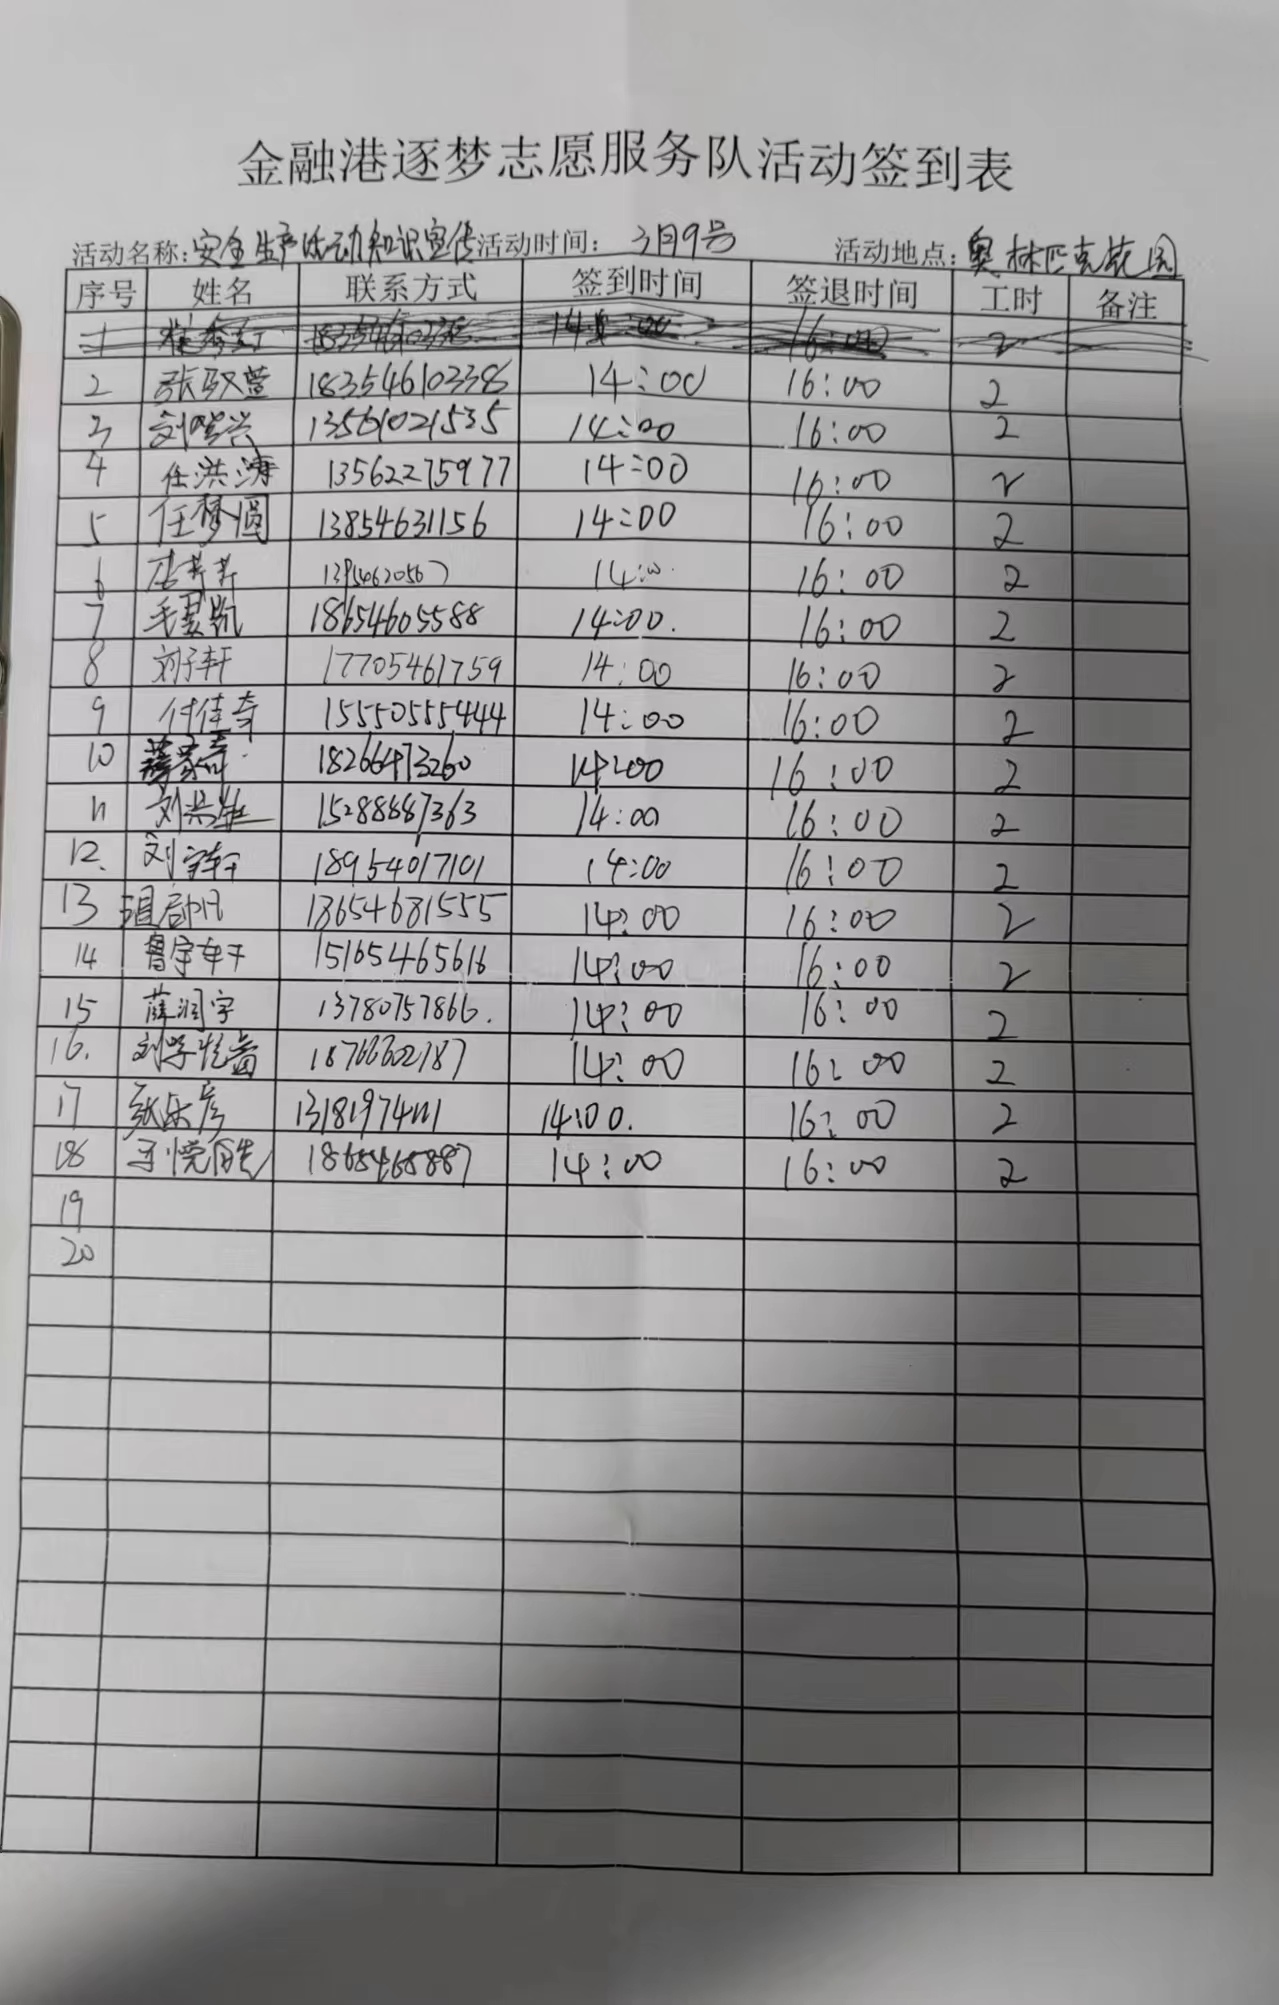 金融港逐梦志愿服务队活动签到表
活动名称:安全生产活动知识宣传 活动时间: 3月9号 活动地点:奥林匹克花园
序号 姓名 联系方式 签到时间 签退时间 工时 备注
1 14:00 16:00 2
2 张驭萱 18354610338 14:00 16:00 2
3 13561021535 14:00 16:00 2
4 任洪涛 13562275977 14:00 16:00 2
5 任梦圆 13854631156 14:00 16:00 2
6 16:00 2
7 18654605588 14:00. 16:00 2
8 刘子轩 17705461759 14:00 16:00 2
9 付佳奇 15550555444 14:00 16:00 2
10 18266473260 14:00 16:00 2
11 14:00 16:00 2
12. 刘宇轩 18954017101 14:00 16:00 2
13 18654681555 14:00 16:00 2
14 鲁宇轩 14:00 16:00 2
15 薛润宇 13780757866. 14:00 16:00 2
16. 14:00 16:00 2
17 张乐彦 14:00. 16:00 2
18 14:00 16:00 2
19
20